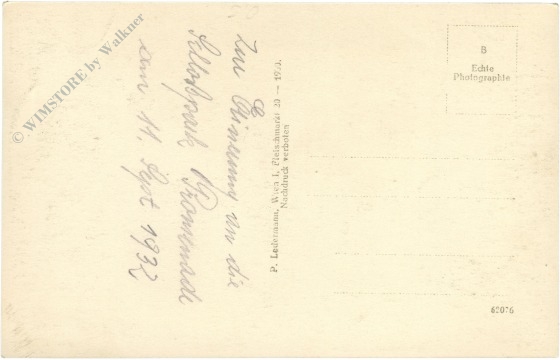 Zur Erinnerung an die
Schloßpark Promenade
am 11. Sept 1932
P. Ledermann, Wien I, Fleischmarkt 20 — 1930.
Nachdruck verboten
B
Echte
Photographie
62076
© WIMSTORE by Walkner